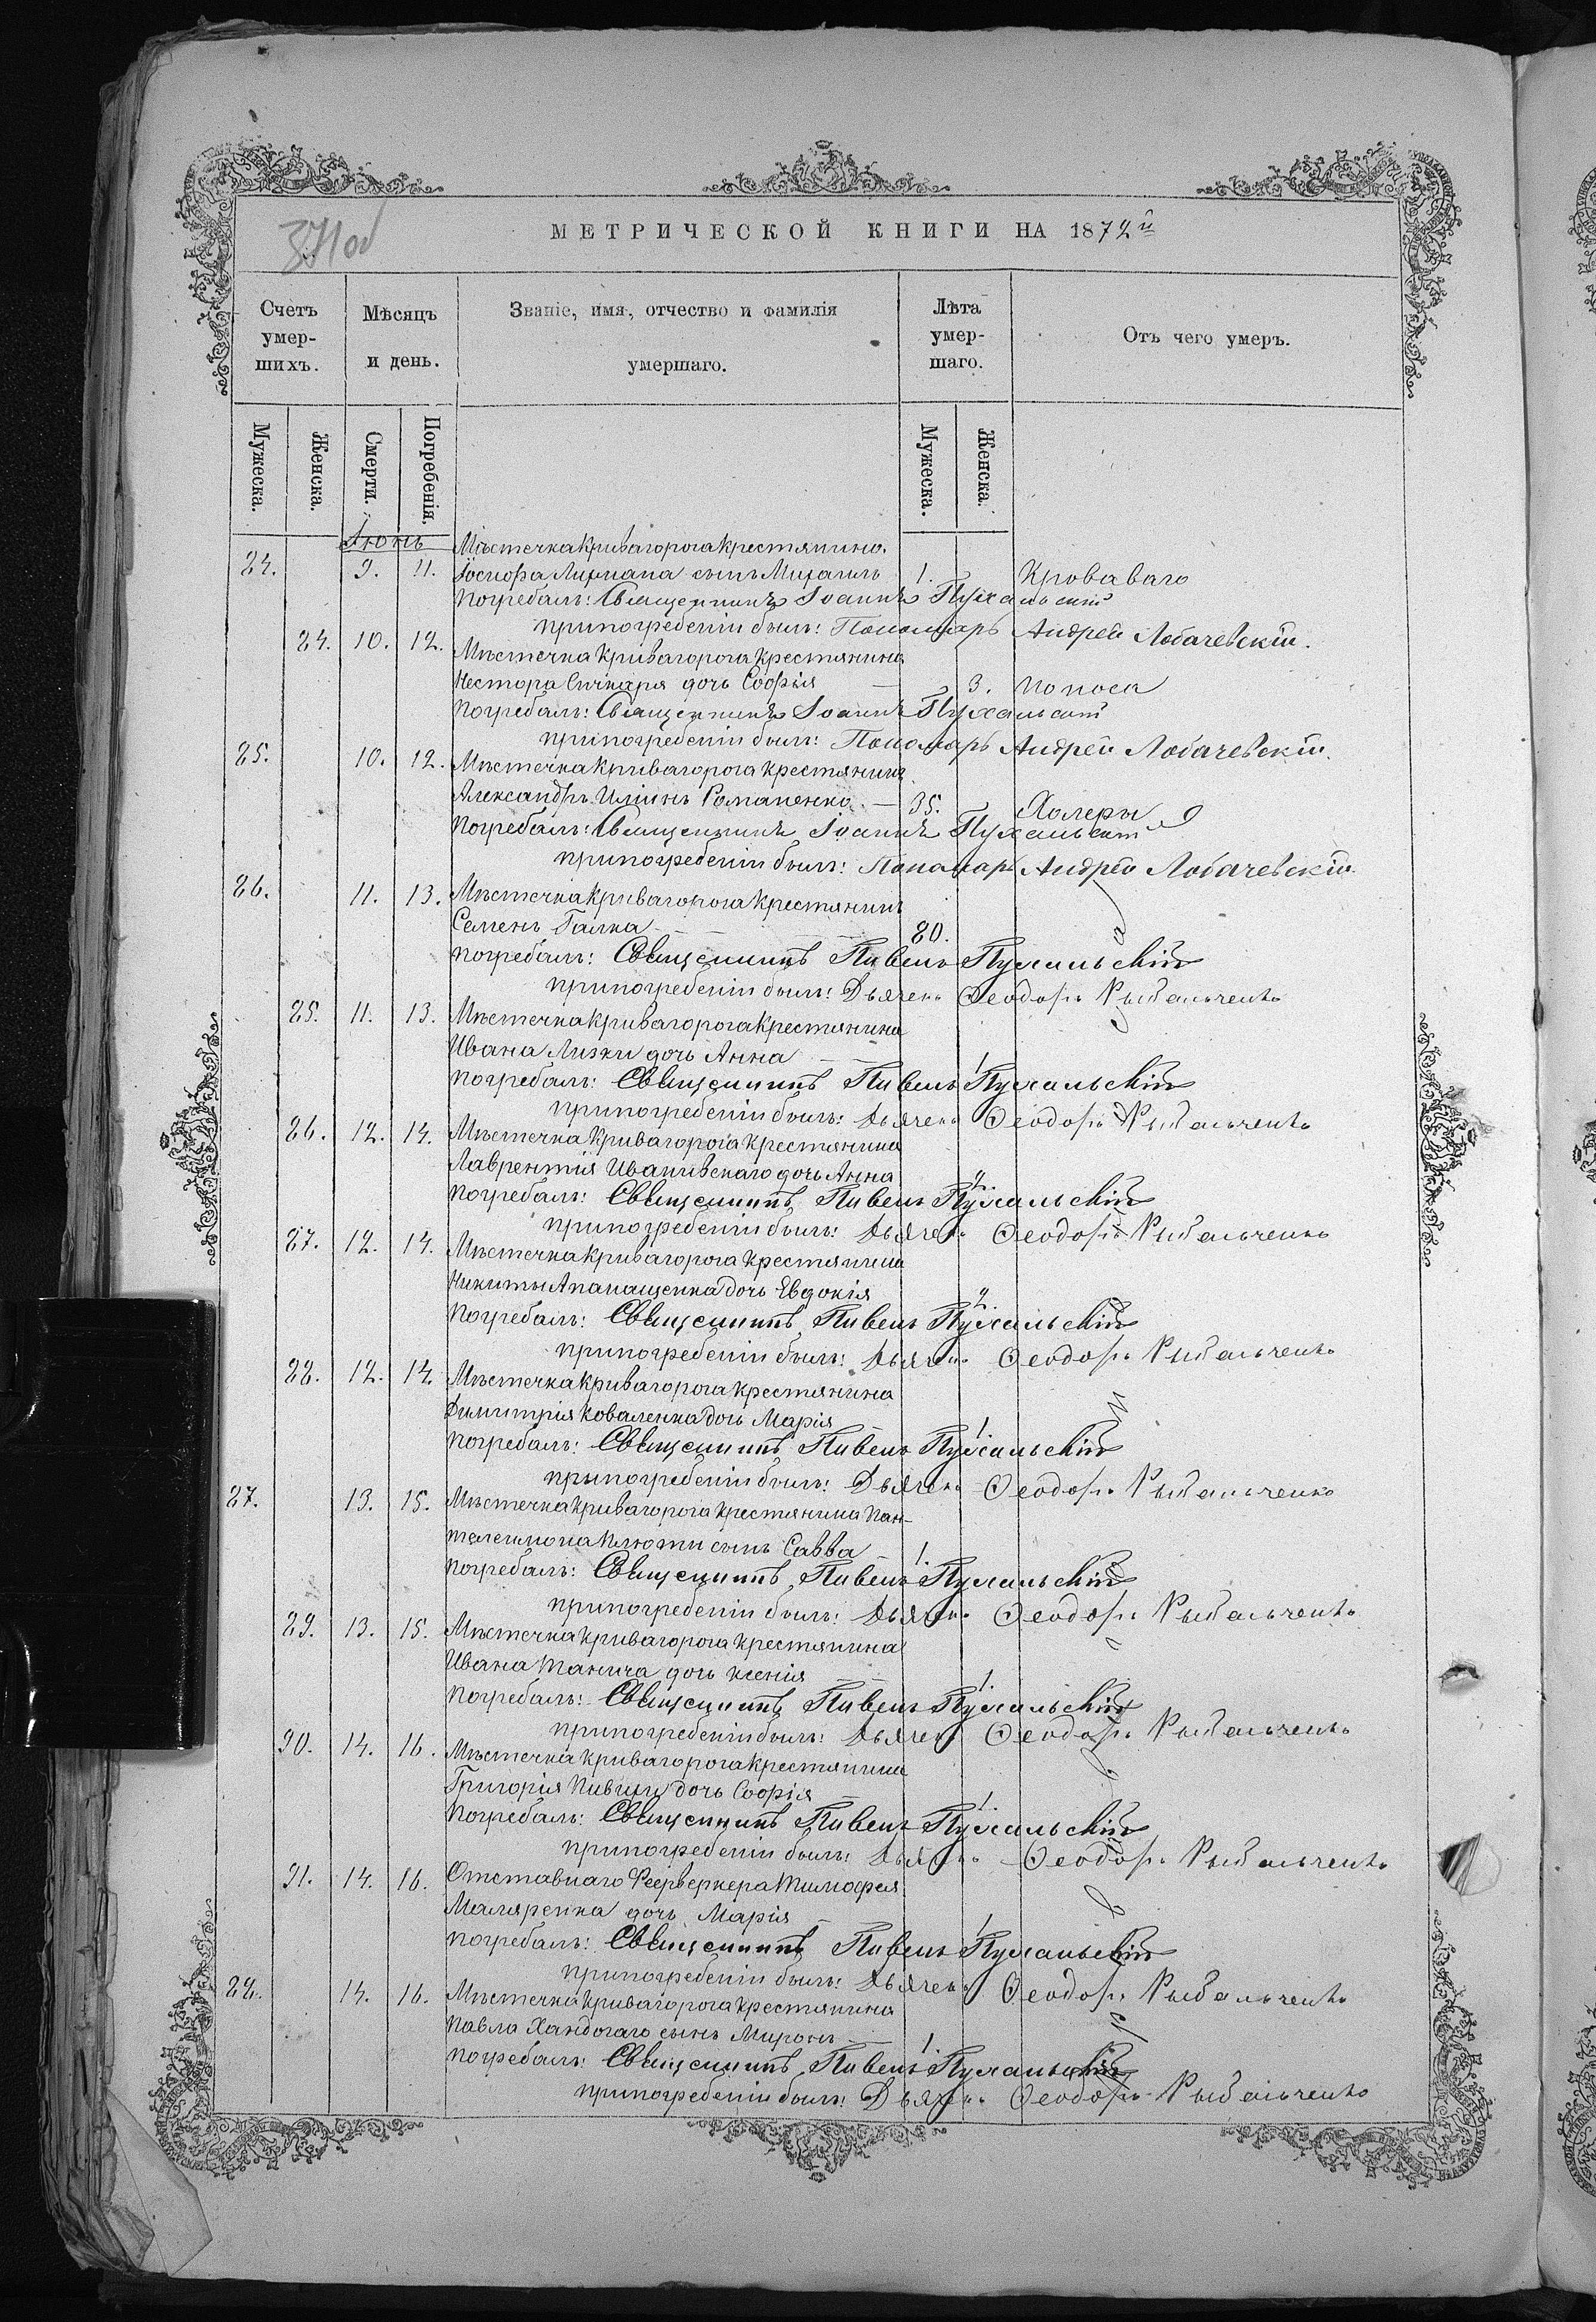 371об
МЕТРИЧЕСКОЙ КНИГИ НА 1872й
Счетъ умер-шихъ.
Мѣсяцъ и день.
Званіе, имя, отчество и фамилія умершаго.
Лѣта умер-шаго.
Отъ чего умеръ.
Мужеска. Женска. Смерти. Погребенія. Мужеска. Женска.
Іюнь Мѣстечка Кривагорога крестянина
24. 9. 11. Іосифа Лирмана сынъ Михаилъ 1. Кроваваго
Погребалъ: Священникъ Іоаннъ Пухальскій
при погребеніи былъ: Пономарь Андрей Лобачевскій.
24. 10. 12. Мѣстечка Кривагорога крестянина
Нестора Сичкаря дочь Софія 3. Поноса
Погребалъ: Священникъ Іоаннъ Пухальскій
при погребеніи былъ: Пономарь Андрей Лобачевскій.
25. 10. 12. Мѣстечка Кривагорога крестянинъ
Александръ Иліинъ Романенко 35. Холеры
Погребалъ: Священникъ Іоаннъ Пухальскій
при погребеніи былъ: Пономарь Андрей Лобачевскій.
26. 11. 13. Мѣстечка Кривагорога крестянинъ
Семенъ Галка 80.
Погребалъ: Священникъ Павелъ Пухальскій
при погребеніи былъ: Дьячекъ Ѳеодоръ Рыбальченко
25. 11. 13. Мѣстечка Кривагорога крестянина
Ивана Лизки дочь Анна 1
Погребалъ: Священникъ Павелъ Пухальскій
при погребеніи былъ: Дьячекъ Ѳеодоръ Рыбальченко
26. 12. 14. Мѣстечка Кривагорога крестянина
Лаврентія Иванивскаго дочь Анна 2.
Погребалъ: Священникъ Павелъ Пухальскій
при погребеніи былъ: Дьячекъ Ѳеодоръ Рыбальченко
27. 12. 14. Мѣстечка Кривагорога крестянина
Никиты Апанащенка дочь Евдокія 2.
Погребалъ: Священникъ Павелъ Пухальскій
при погребеніи былъ: Дьячекъ Ѳеодоръ Рыбальченко
28. 12. 14. Мѣстечка Кривагорога крестянина
Димитрія Коваленка дочь Марія 1.
Погребалъ: Священникъ Павелъ Пухальскій
при погребеніи былъ: Дьячекъ Ѳеодоръ Рыбальченко
27. 13. 15. Мѣстечка Кривагорога крестянина Пан-
телеимона Плюти сынъ Савва 1.
Погребалъ: Священникъ Павелъ Пухальскій
при погребеніи былъ: Дьячекъ Ѳеодоръ Рыбальченко
29. 13. 15. Мѣстечка Кривагорога крестянина
Ивана Танича дочь Ксенія 1.
Погребалъ: Священникъ Павелъ Пухальскій
при погребеніи былъ: Дьячекъ Ѳеодоръ Рыбальченко
30. 14. 16. Мѣстечка Кривагорога крестянина
Григорія дочь Софія 1.
Погребалъ: Священникъ Павелъ Пухальскій
при погребеніи былъ: Дьячекъ Ѳеодоръ Рыбальченко
31. 14. 16. Отставнаго Феерверкера Тимофея
Маляренка дочь Марія 1
Погребалъ: Священникъ Павелъ Пухальскій
при погребеніи былъ: Дьячекъ Ѳеодоръ Рыбальченко
28. 14. 16. Мѣстечка Кривагорога крестянина
Павла Хандогаго сынъ Миронъ 1.
Погребалъ: Священникъ Павелъ Пухальскій
при погребеніи былъ: Дьячекъ Ѳеодоръ Рыбальченко